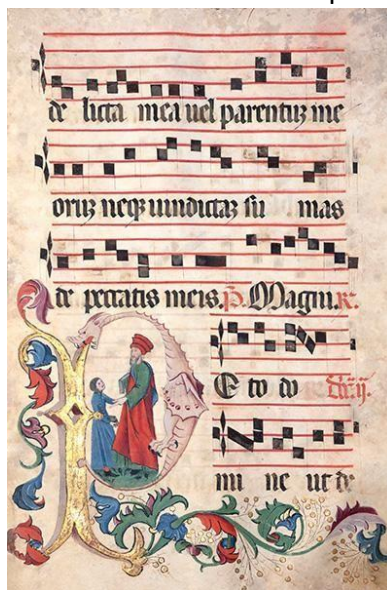 de licta mea uel parentuz me
oruz neqz uindictaz su mas
de peccatis meis. Magni.
P E to do
mi ne ut de